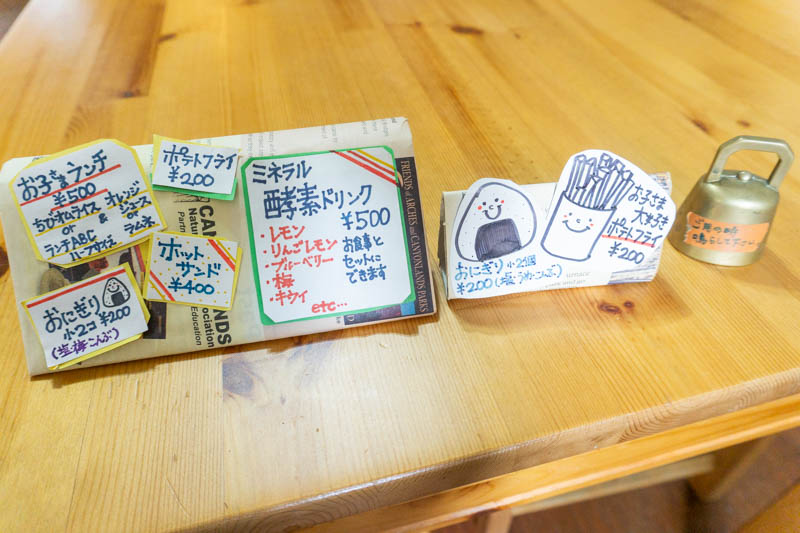 お子さまランチ
¥500
ちびオムライス
or
ランチABC
ハーフサイズ
&
オレンジ
ジュース
or
ラムネ
ポテトフライ
¥200
ホット
サンド
¥400
おにぎり
小2コ ¥200
(塩・梅・こんぶ)
ミネラル
酵素ドリンク
¥500
・レモン
・りんごレモン
・ブルーベリー
・梅
・キウイ
etc...
お食事と
セットに
できます
FRIENDS of ARCHES and CANYONLANDS PARKS
Education
おにぎり 小2個
¥200 (塩・うめ・こんぶ)
お子さま
大好き
ポテトフライ
¥200
urnace
ご用の時
鳴らして下さい